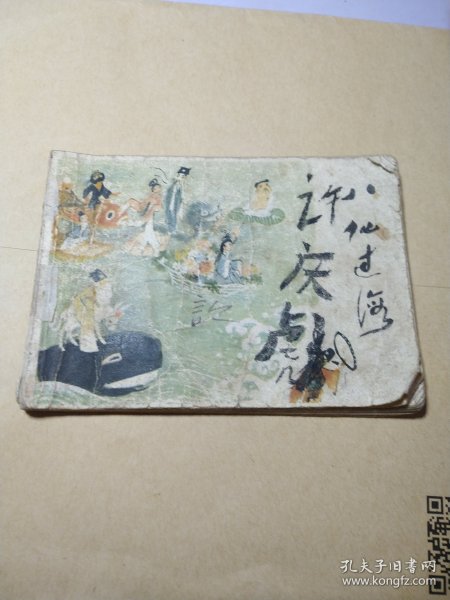 八仙过海
许庆
许
孔夫子旧书网
www.kongfz.com